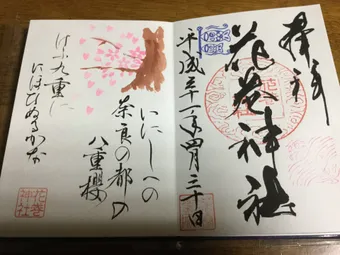 奉拝
花巻神社
平成三十一年四月三十日
いにしへの
奈良の都の
八重櫻
けふ九重に
にほひぬるかな
花巻
神社